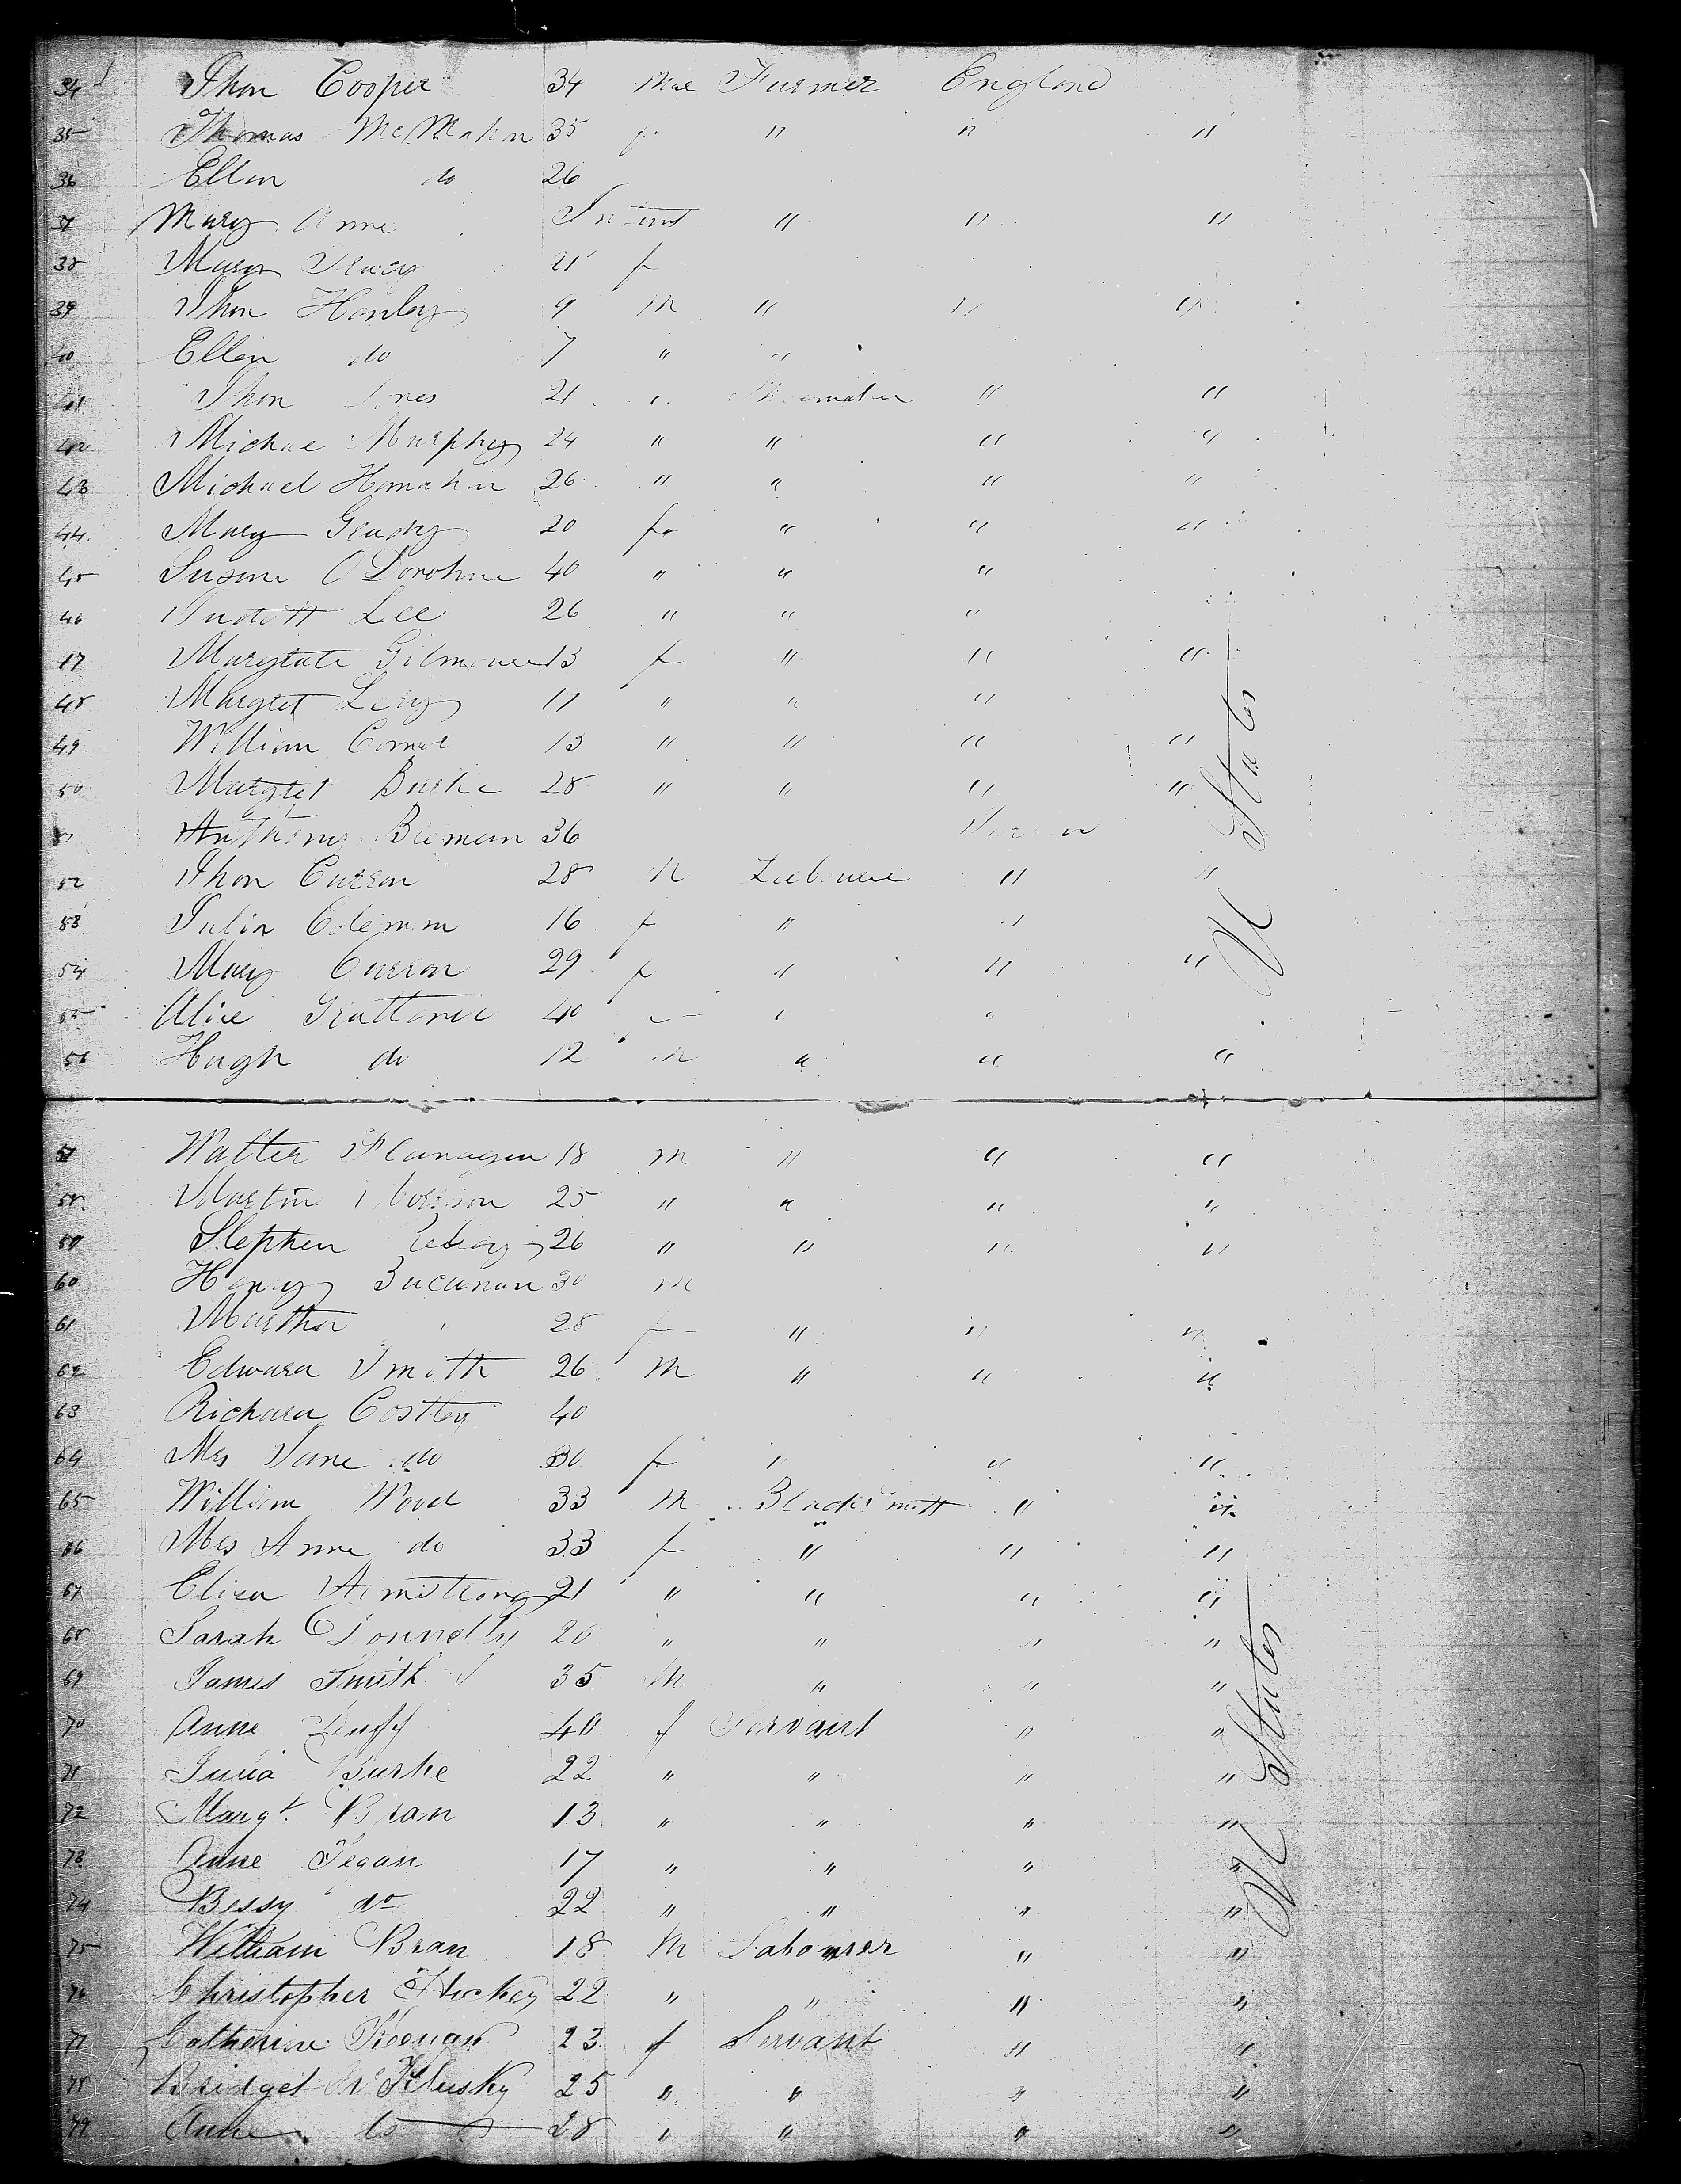 34 Jhon Cooper 34 Mae Farmer England
35 Thomas McMahon 35 f " " "
36 Ellen do 26
37 Mary Anne Infant " " "
38 Mary Tracy 21 f
39 Jhon Hanley 9 m " " "
40 Ellen do 7 " "
41 Jhon Jones 21 " " "
42 Michae Murphy 24 " " " "
43 Michael 26 " " " "
44 Mary Grady 20 f " " "
45 Susane 40 " " "
46 Lee 26 " " "
47 13 f " " "
48 Margret Leey 11 " " "
49 William 13 " " " "
50 Margret Burke 28 " " " "
51 Anthony 36
52 Jhon Curran 28 M " "
53 Julia Coleman 16 f " "
54 Mary Curran 29 f " " "
55 Alice 40 " "
56 Hugh do 12 m " " "
U States
57 Walter Flanagan 18 m " " "
58 Martin 25 " " " "
59 Stephen 26 " " " "
60 Henry Bucanan 30 m
61 Martha 28 f " " "
62 Edward Smith 26 M " " "
63 Richard Costley 40
64 Mrs Jane do 30 f " " "
65 William Wood 33 M Blacksmith " "
66 Mrs Anne do 33 f " " "
67 Eliza Armstrong 21 " " " "
68 Sarah Donnelly 20 " " " "
69 James Smith 35 M " " "
70 Anne 40 f Servant " "
71 Julia Burke 22 " " " "
72 Margt. Bran 13 " " " "
73 Anne Fegan 17 " " " "
74 Bessy do 22 " " " "
75 William Bran 18 M Labourer " "
76 Christopher Huckey 22 " " " "
77 Catherine Keenan 23 f Servant " "
78 Bridget 25 " " " "
79 Anne do 28 " " " "
U States